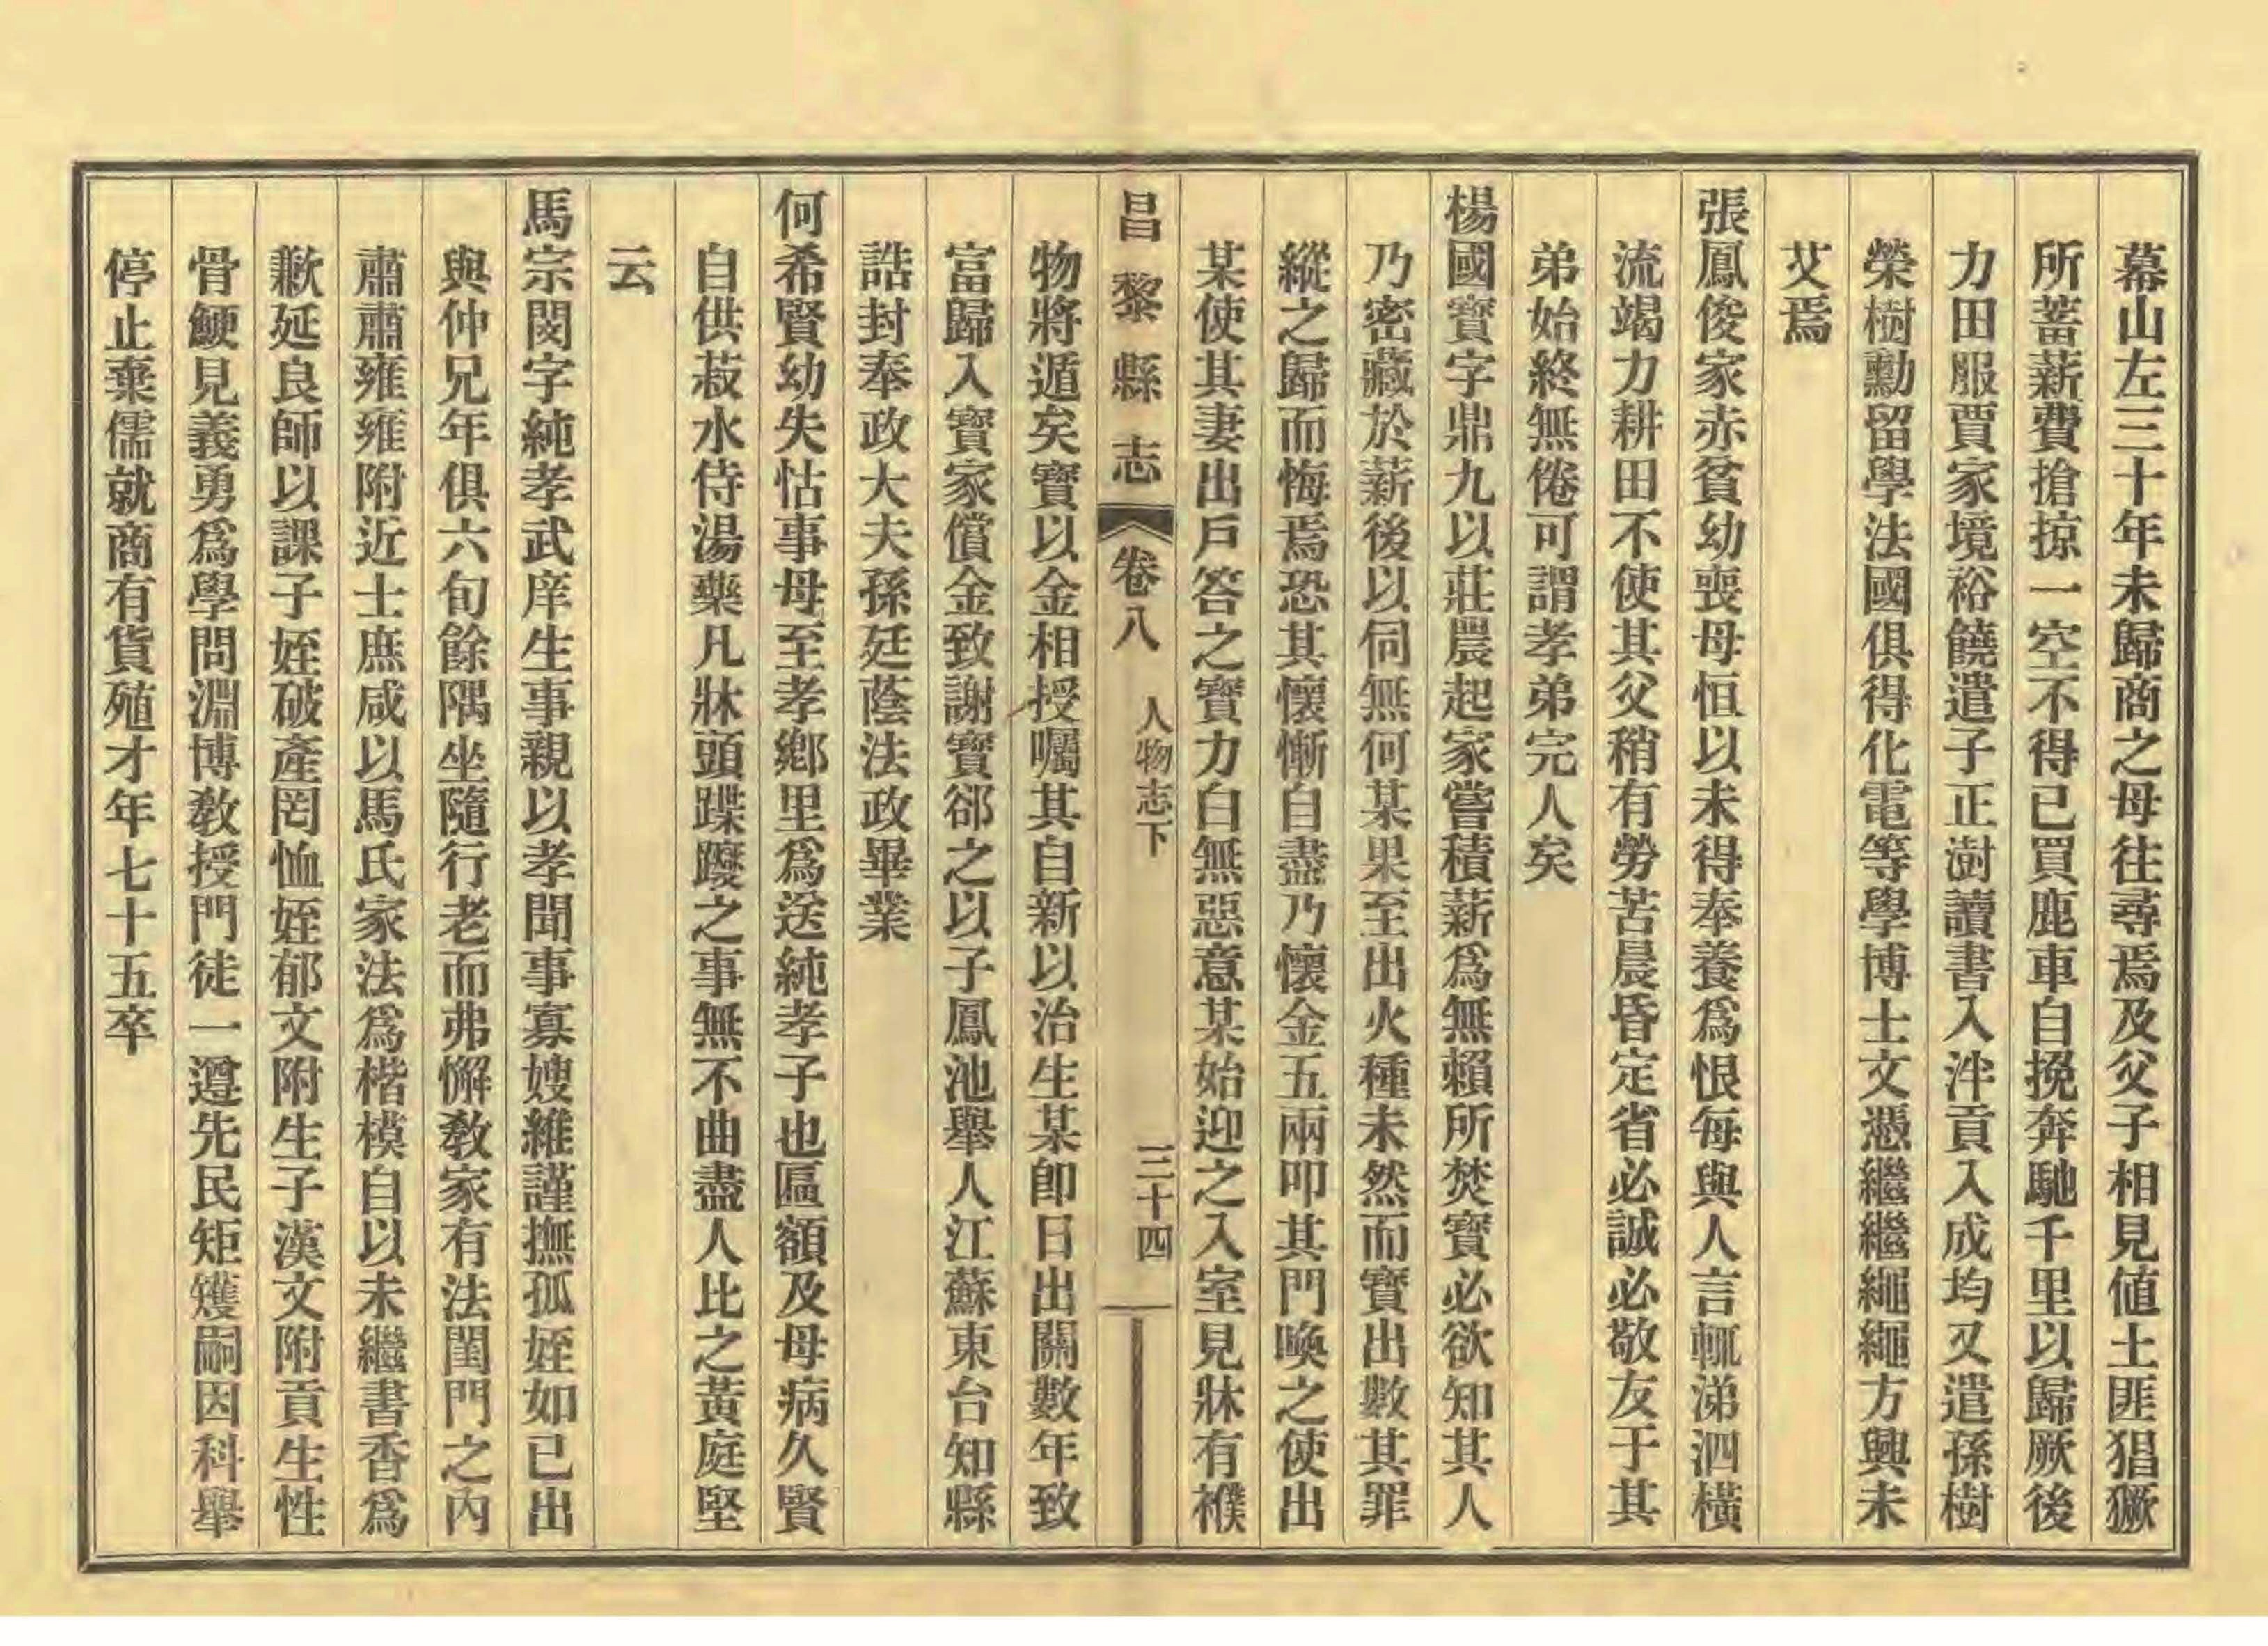 幕山左三十年未歸商之母往尋焉及父子相見値土匪猖獗
所蓄薪費搶掠一空不得已買鹿車自挽奔馳千里以歸厥後
力田服賈家境裕饒遣子正澍讀書入泮貢入成均又遣孫樹
榮樹勳留學法國俱得化電等學博士文憑繼繼繩繩方興未
艾焉
張鳳俊家赤貧幼喪母恒以未得奉養爲恨每與人言輒涕泗橫
流竭力耕田不使其父稍有勞苦晨昏定省必誠必敬友于其
弟始終無倦可謂孝弟完人矣
楊國寶字鼎九以莊農起家嘗積薪爲無賴所焚寶必欲知其人
乃密藏於薪後以伺無何某果至出火種未然而寶出數其罪
縱之歸而悔焉恐其懷慚自盡乃懷金五兩叩其門喚之使出
某使其妻出戶答之寶力白無惡意某始迎之入室見牀有襆
昌黎縣志 卷八 人物志下 三十四
物將遁矣寶以金相授囑其自新以治生某卽日出關數年致
富歸入寶家償金致謝寶郤之以子鳳池舉人江蘇東台知縣
誥封奉政大夫孫廷蔭法政畢業
何希賢幼失怙事母至孝鄉里爲送純孝子也匾額及母病久賢
自供菽水侍湯藥凡牀頭蹀躞之事無不曲盡人比之黃庭堅
云
馬宗閔字純孝武庠生事親以孝聞事寡嫂維謹撫孤姪如已出
與仲兄年俱六旬餘隅坐隨行老而弗懈敎家有法閨門之內
肅肅雍雍附近士庶咸以馬氏家法爲楷模自以未繼書香爲
歉延良師以課子姪破產罔恤姪郁文附生子漢文附貢生性
骨鯁見義勇爲學問淵博敎授門徒一遵先民矩矱嗣因科舉
停止棄儒就商有貨殖才年七十五卒